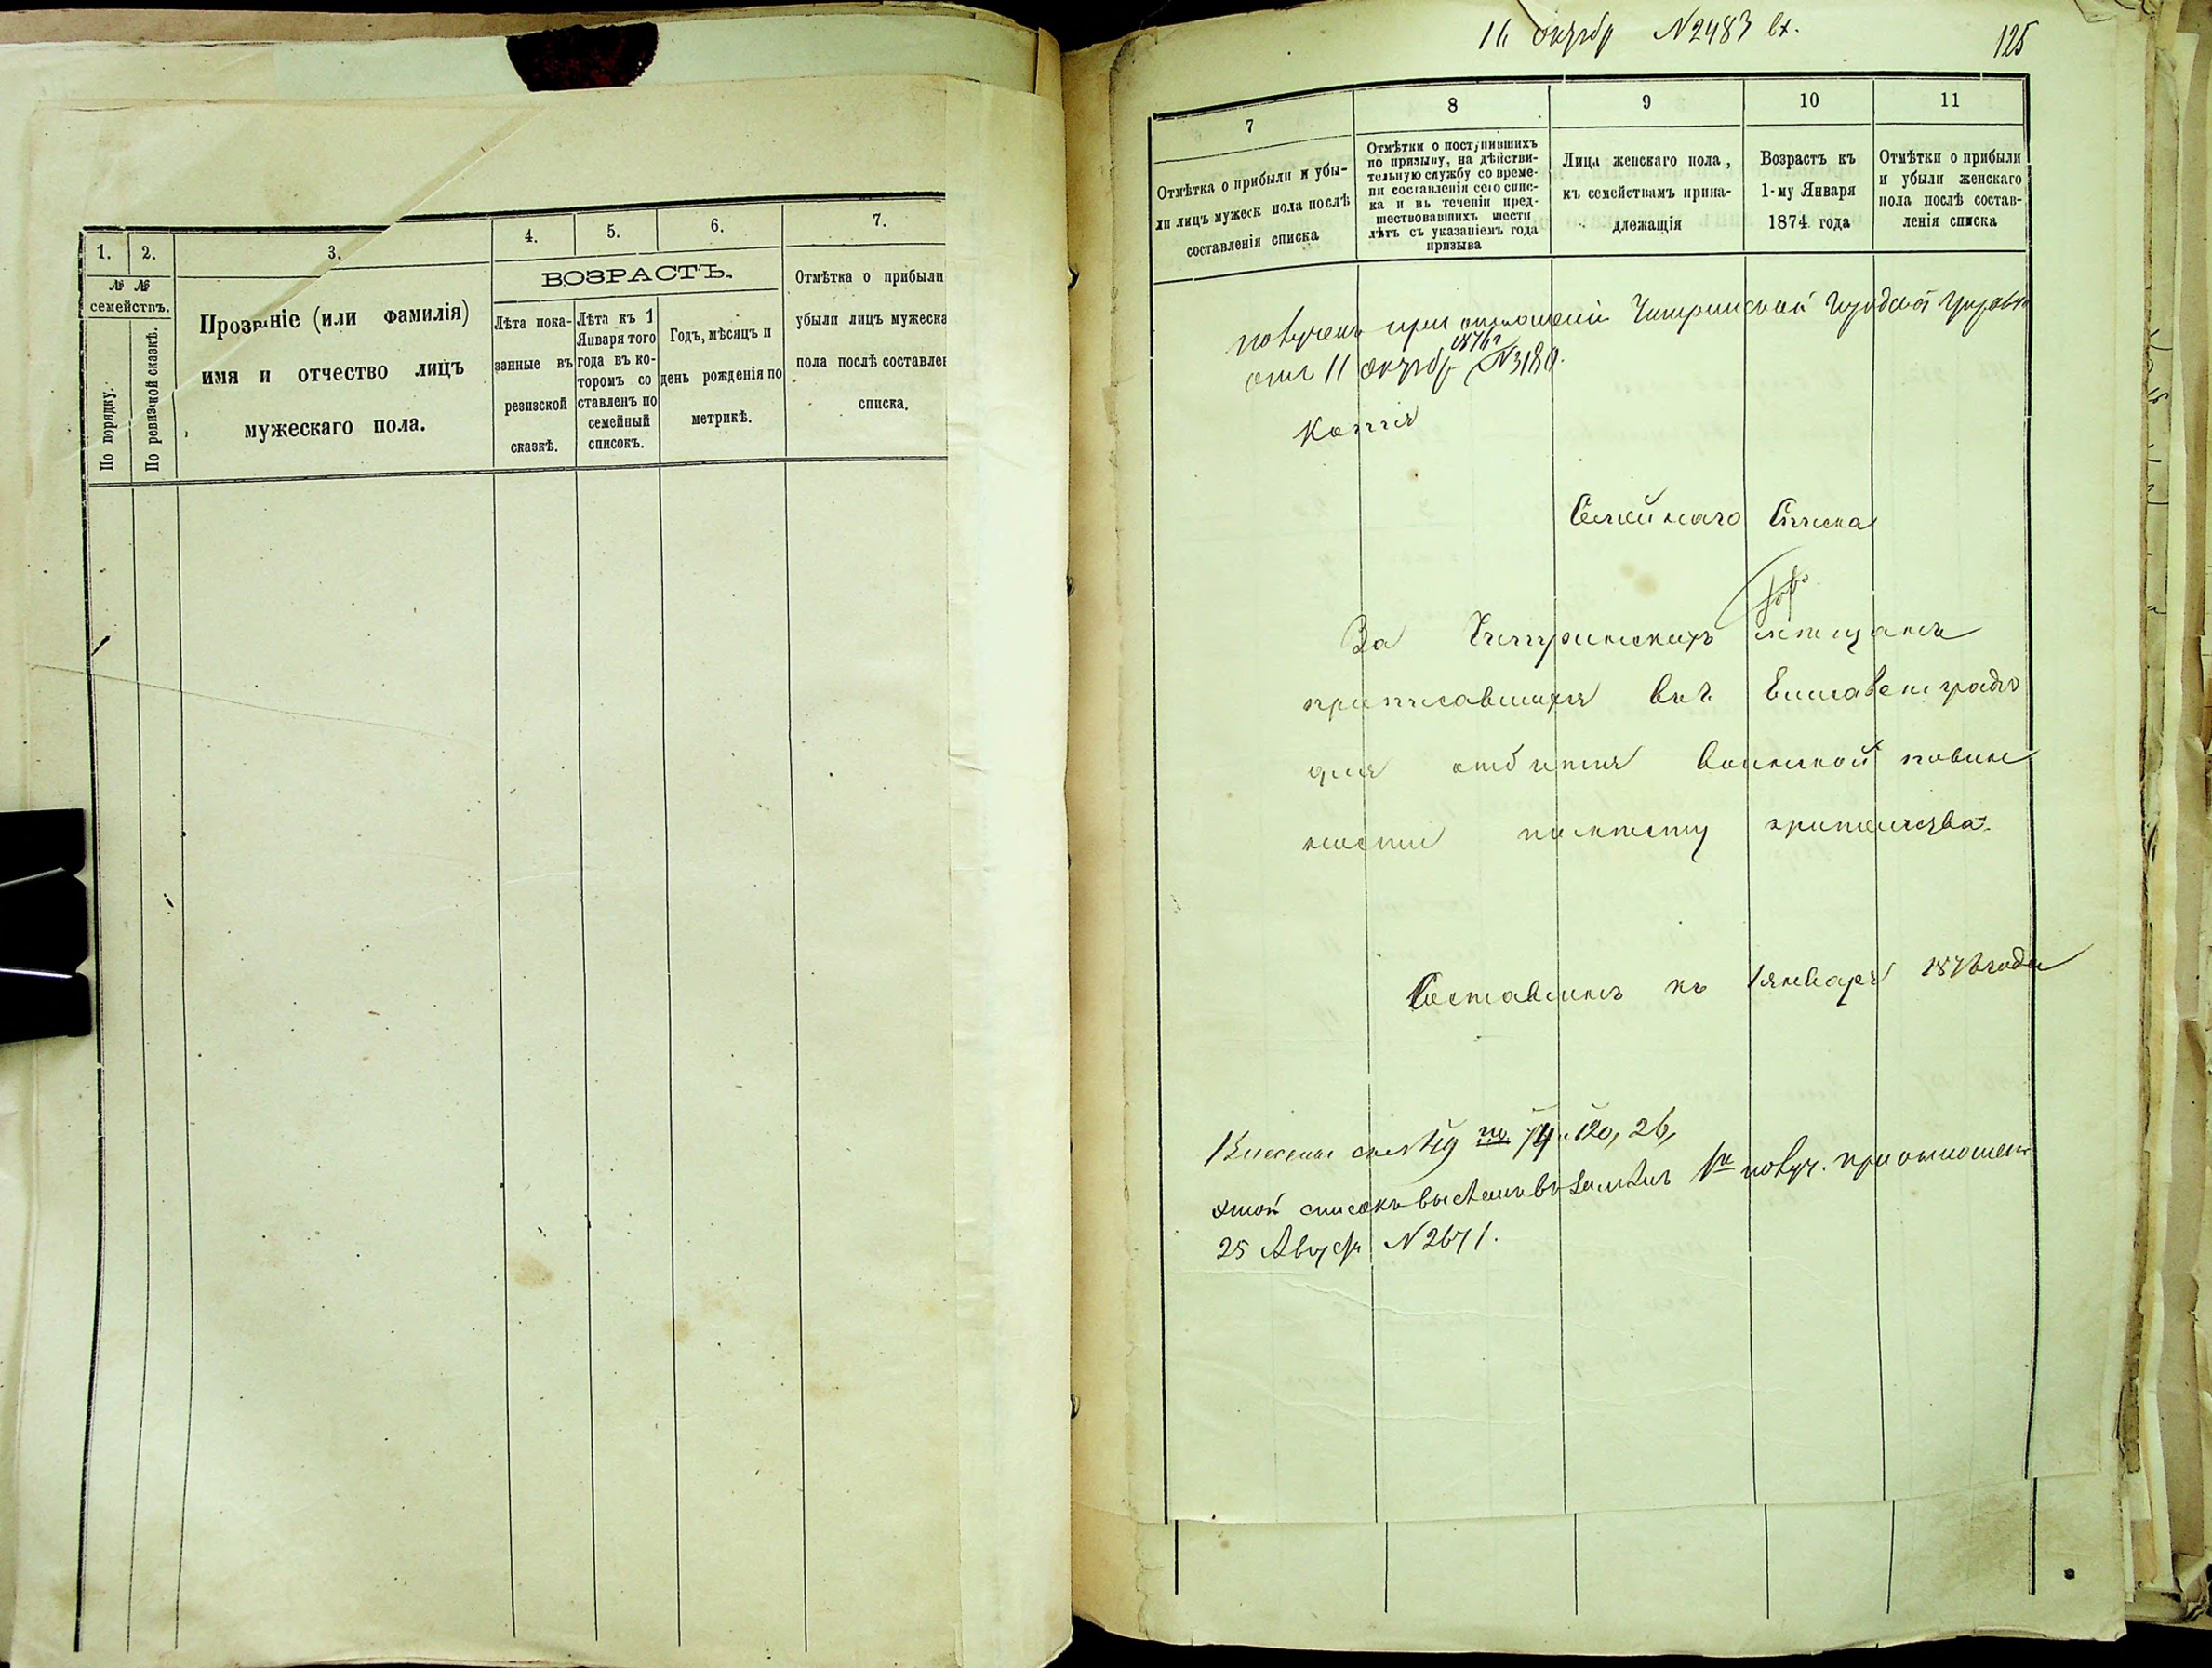 1.
2.
3.
4.
5.
6.
7.
№ №
семействъ.
По порядку.
По ревизской сказкѣ.
Прозваніе (или фамилія)
имя и отчество лицъ
мужескаго пола.
ВОЗРАСТЪ.
Лѣта пока-
занные въ
резизской
сказкѣ.
Лѣта къ 1
Января того
года въ ко-
торомъ со
ставленъ по
семейный
списокъ.
Годъ, мѣсяцъ и
день рожденія по
метрикѣ.
Отмѣтка о прибыли
убыли лицъ мужеска
пола послѣ составлен
списка.
11 октябр №2483 вх.
125
7
8
9
10
11
Отмѣтка о прибыли и убы-
ли лицъ мужеск пола послѣ
составленія списка
Отмѣтки о поступившихъ
по призыву, на дѣйстви-
тельную службу со време-
ни составленія сего спис-
ка и въ теченіи пред-
шествовавшихъ шести
лѣтъ съ указаніемъ года
призыва
Лица женскаго пола,
къ семействамъ прина-
длежащія
Возрастъ къ
1-му Января
1874 года
Отмѣтки о прибыли
и убыли женскаго
пола послѣ состав-
ленія списка
получена при отношеніи Чигиринской Городской Управы
отъ 11 октябр 1876 г №3180.
Копія
Семейнаго Списка
Чигиринскихъ мѣщанъ
приписавшихся въ Елисаветградѣ
для отбытія воинской повин
ности по мѣсту жительства.
Составленъ къ 1 январю 1876 года
этой списокъ получ. при отношен
25 Август №2671.